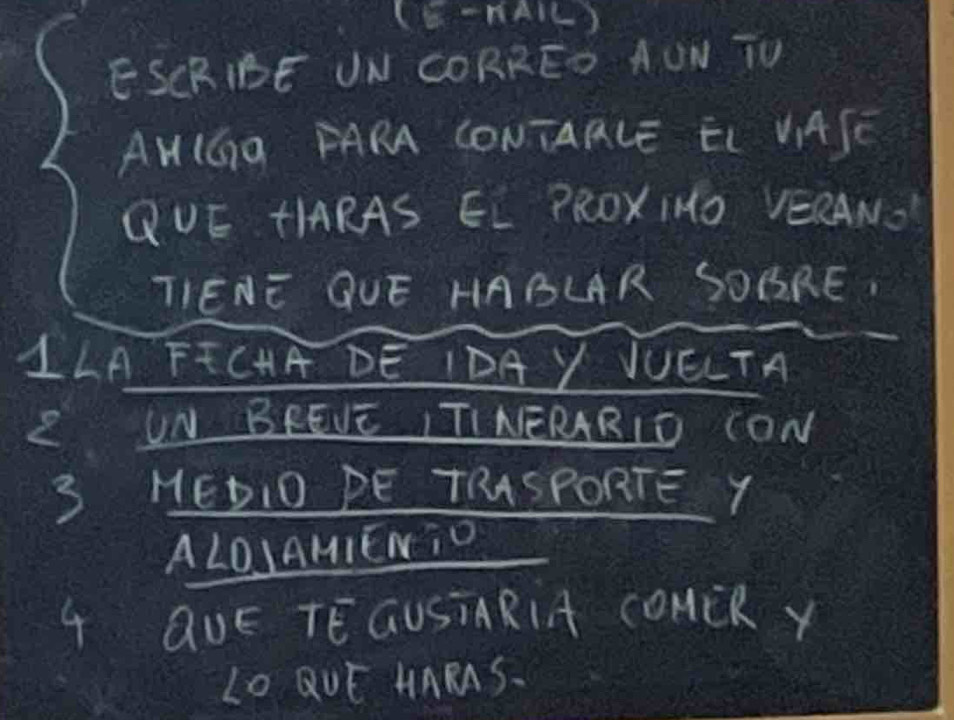 (E-MAIL)
ESCRIBE UN CORREO A UN TU
AMIGO PARA CONTARLE EL VIAJE
QUE HARAS EL PROXIMO VERANO
TIENE QUE HABLAR SOBRE.
1 LA FECHA DE IDA Y VUELTA
2 UN BREVE ITINERARIO CON
3 MEDIO DE TRASPORTE Y
ALOJAMIENTO
4 QUE TE GUSTARIA COMER Y
LO QUE HARAS.